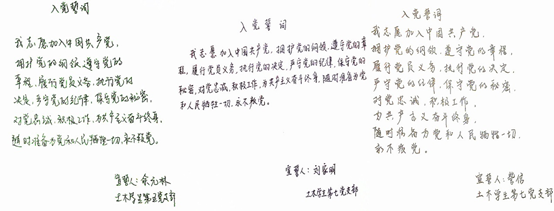 入党誓词
我志愿加入中国共产党，
拥护党的纲领，遵守党的
章程，履行党员义务，执行党的
决定，严守党的纪律，保守党的秘密，
对党忠诚，积极工作，为共产主义奋斗终身，
随时准备为党和人民牺牲一切，永不叛党。
宣誓人：余元林
土木学生第五党支部
入党誓词
我志愿加入中国共产党，拥护党的纲领，遵守党的章
程，履行党员义务，执行党的决定，严守党的纪律，保守党的
秘密，对党忠诚，积极工作，为共产主义奋斗终身，随时准备为党
和人民牺牲一切，永不叛党。
宣誓人：刘家明
土木学生第七党支部
入党誓词
我志愿加入中国共产党，
拥护党的纲领，遵守党的章程，
履行党员义务，执行党的决定，
严守党的纪律，保守党的秘密，
对党忠诚，积极工作，
为共产主义奋斗终身，
随时准备为党和人民牺牲一切，
永不叛党。
宣誓人：
土木学生第七党支部